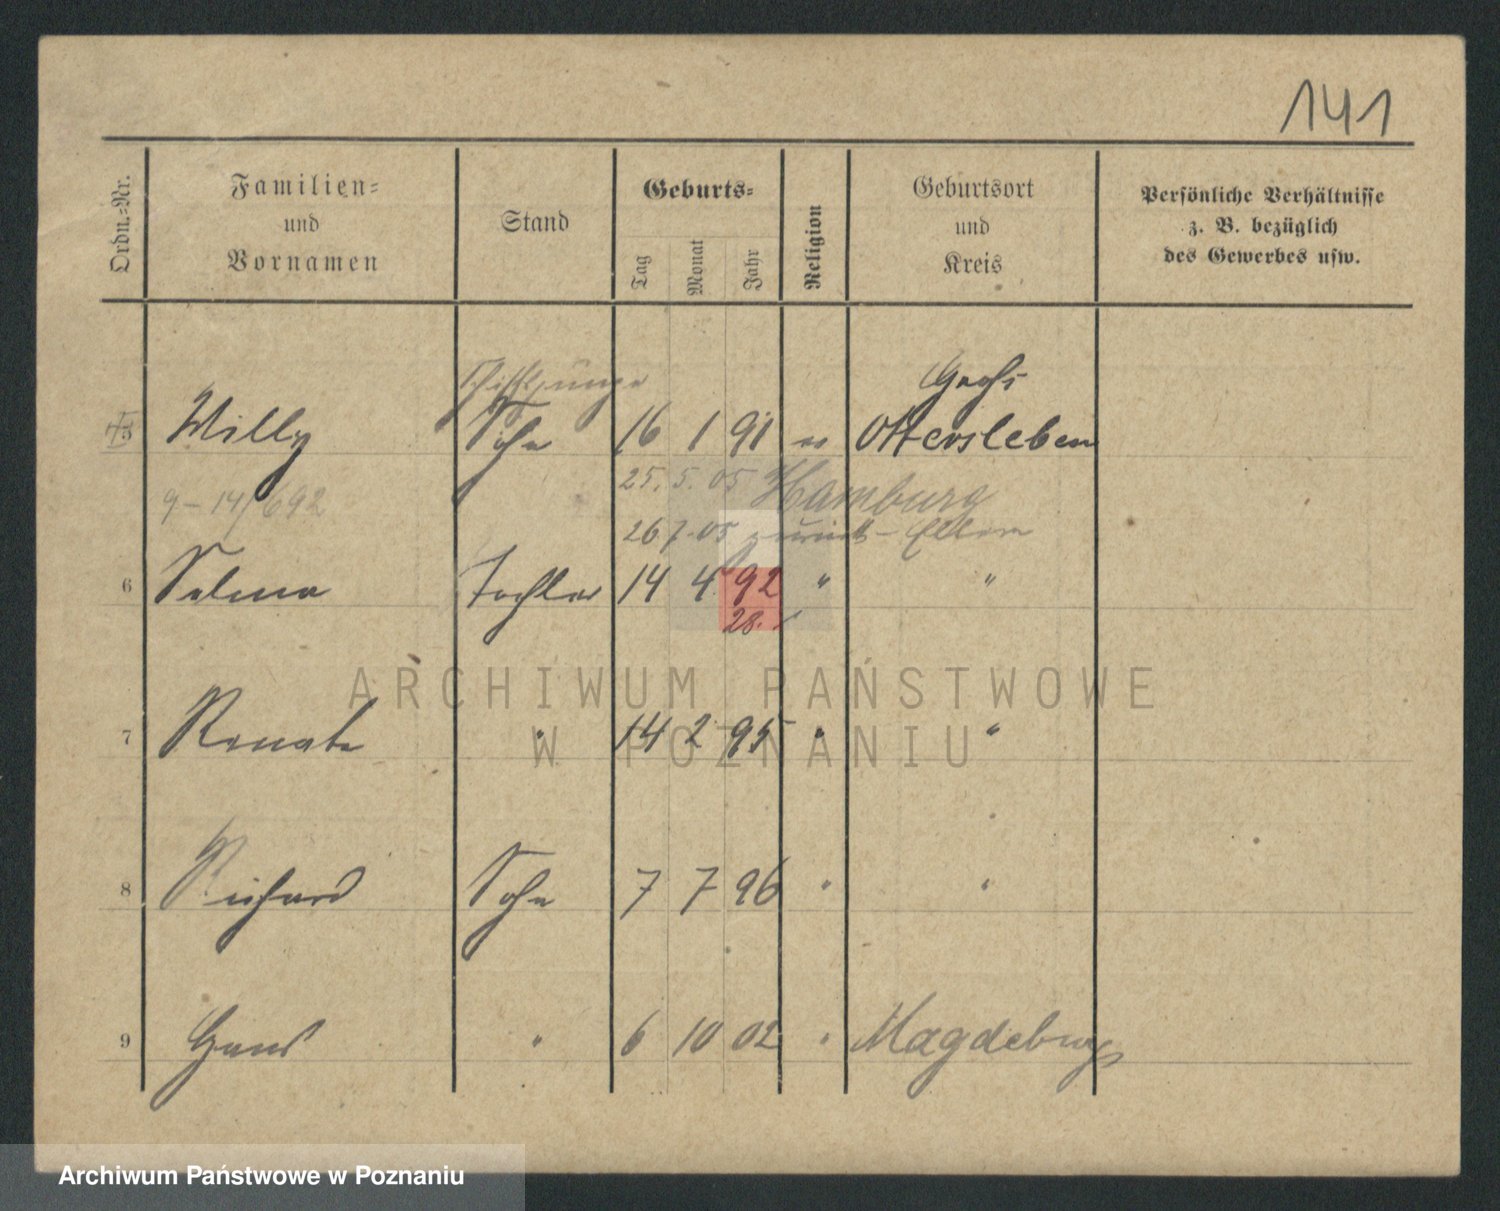 141
Ordn.-Nr.
Familien-
und
Vornamen
Stand
Geburts-
Tag Monat Jahr
Religion
Geburtsort
und
Kreis
Persönliche Verhältnisse
z. B. bezüglich
des Gewerbes usw.
Schiffsjunge Groß
5 Willy Sohn 16 1 91 " Ottersleben
9-14/692 25. 5. 05 Hamburg
26 7. 05 zurück - Eltern
6 Selma Tochter 14 4. 92 " "
28.
ARCHIWUM PAŃSTWOWE
W POZNANIU
7 Renate " 14 2 95 " "
8 Richard Sohn 7 7 96 " "
9 Hans " 6 10 02 " Magdeburg
Archiwum Państwowe w Poznaniu